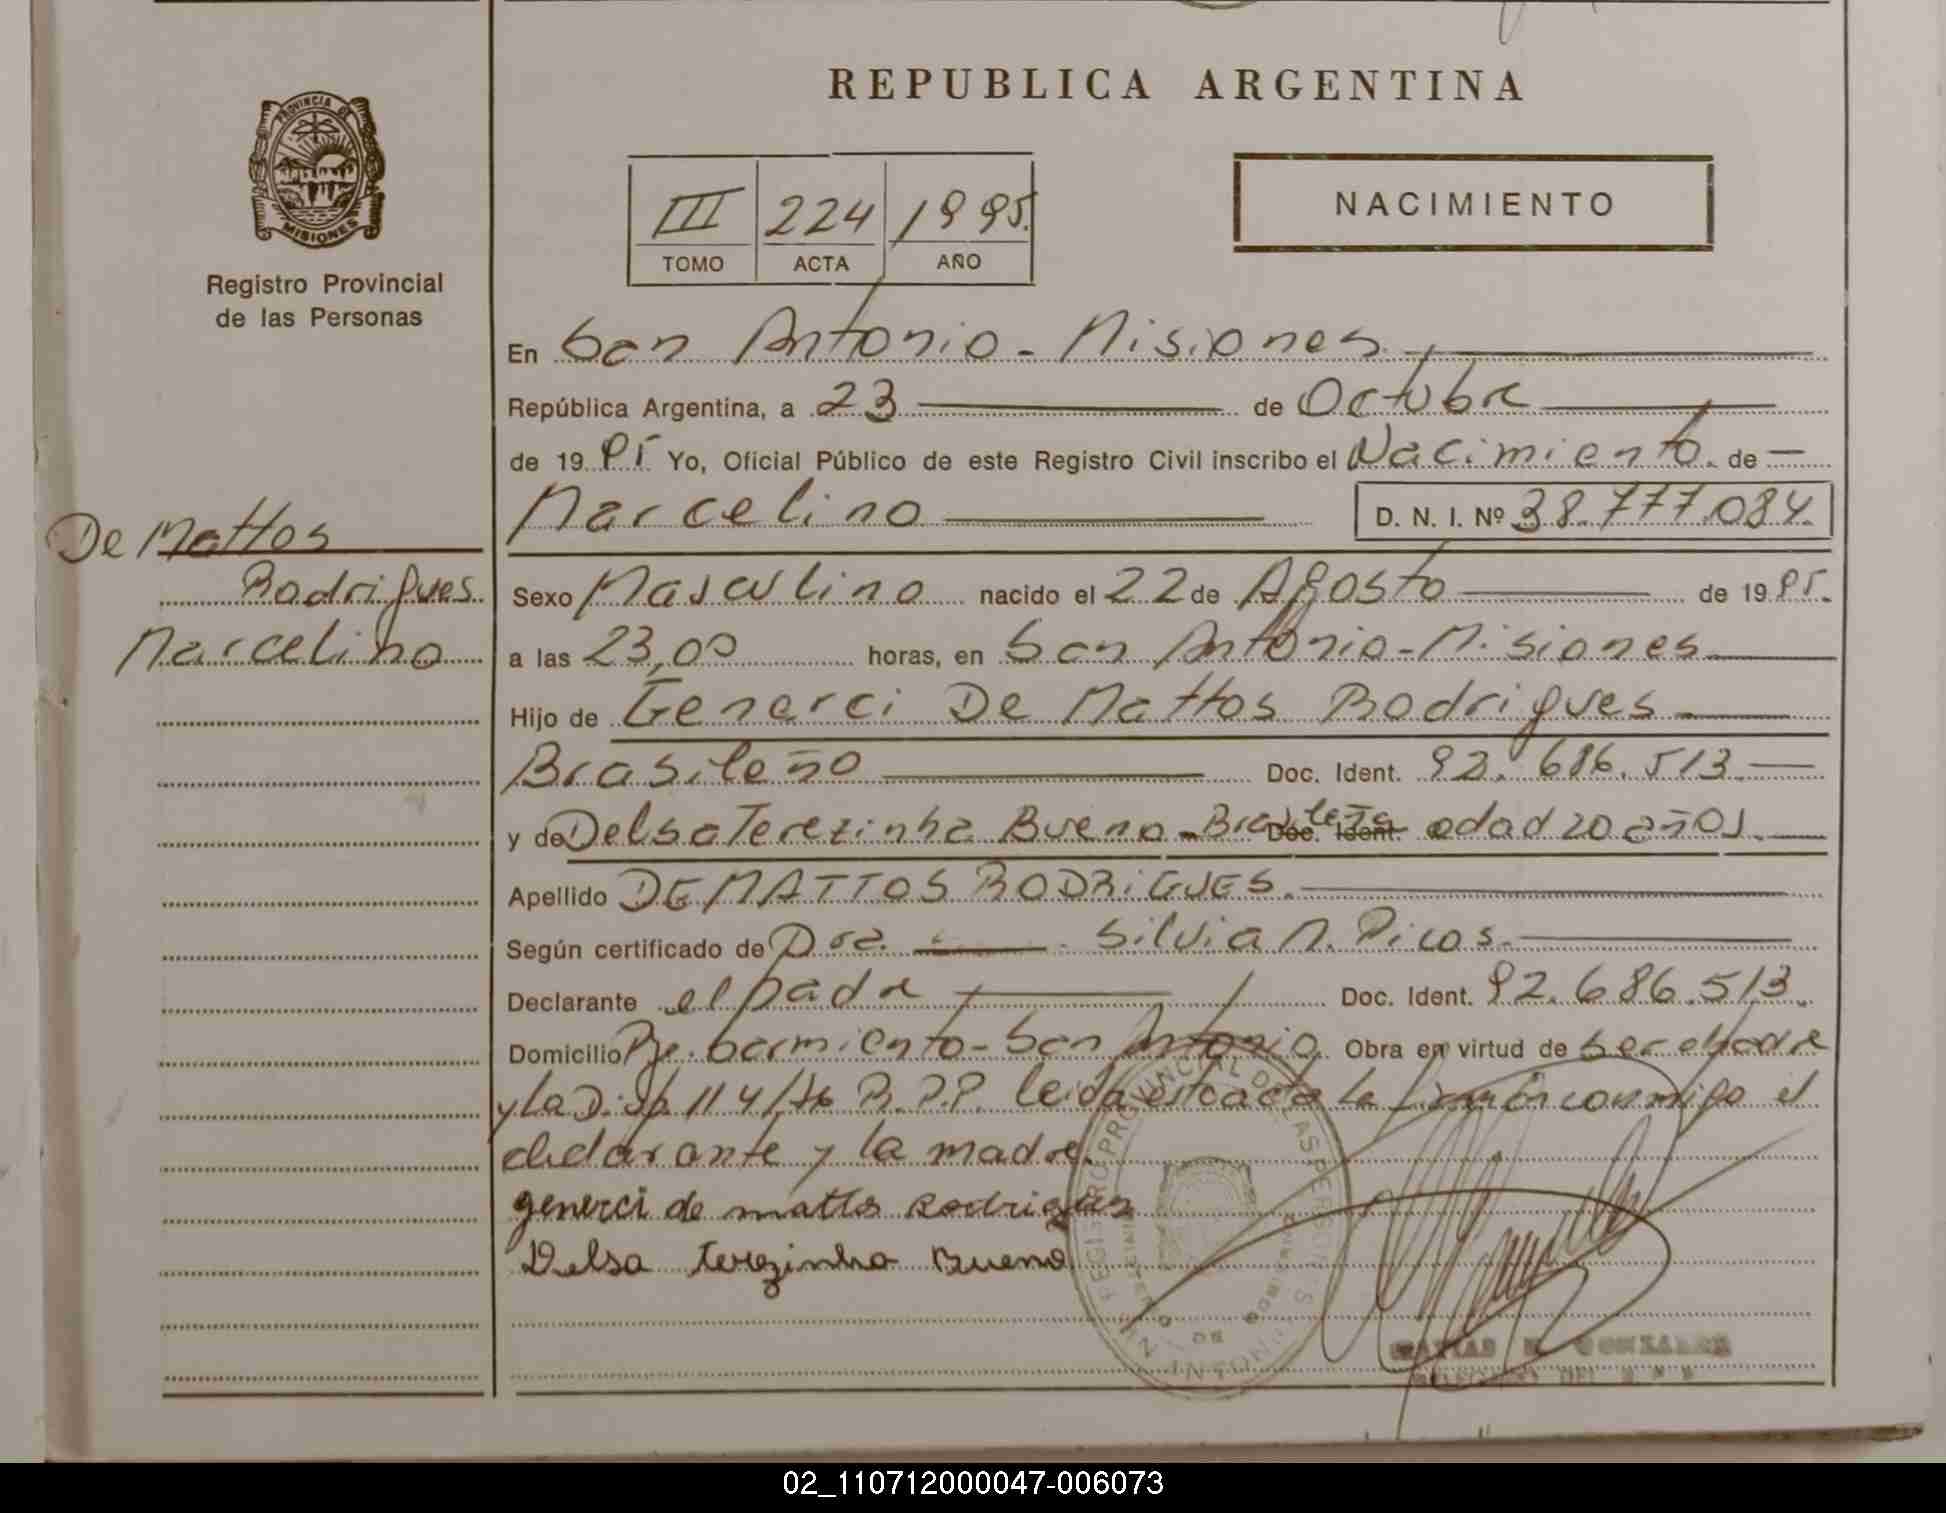 REPUBLICA ARGENTINA
PROVINCIA DE
MISIONES
Registro Provincial
de las Personas
III 224 1995.
TOMO ACTA AÑO
NACIMIENTO
En San Antonio - Misiones
República Argentina, a 23 de Octubre
de 19 95 Yo, Oficial Público de este Registro Civil inscribo el Nacimiento. de
Marcelino D. N. I. Nº 38.777.084.
De Mattos
Rodrigues
Marcelino
Sexo Masculino nacido el 22 de Agosto de 19 95.
a las 23,00 horas, en San Antonio - Misiones
Hijo de Generci De Mattos Rodrigues
Brasileño Doc. Ident. 92.686.513.
y de Delsa Terezinha Bueno - Brasileña Doc. Ident. edad 20 años.
Apellido DE MATTOS RODRIGUES.
Según certificado de Dra. Silvia N. Picos.
Declarante el padre Doc. Ident. 92.686.513.
Domicilio Pje. Sarmiento - San Antonio. Obra en virtud de ser el padre
y La Disp. 114/76 R.P.P. leida esta acta la firman conmigo el
declarante y la madre.
generci de matts Rodrigues
Delsa terezinha Bueno
REGISTRO PROVINCIAL DE LAS PERSONAS
SAN ANTONIO
02_110712000047-006073